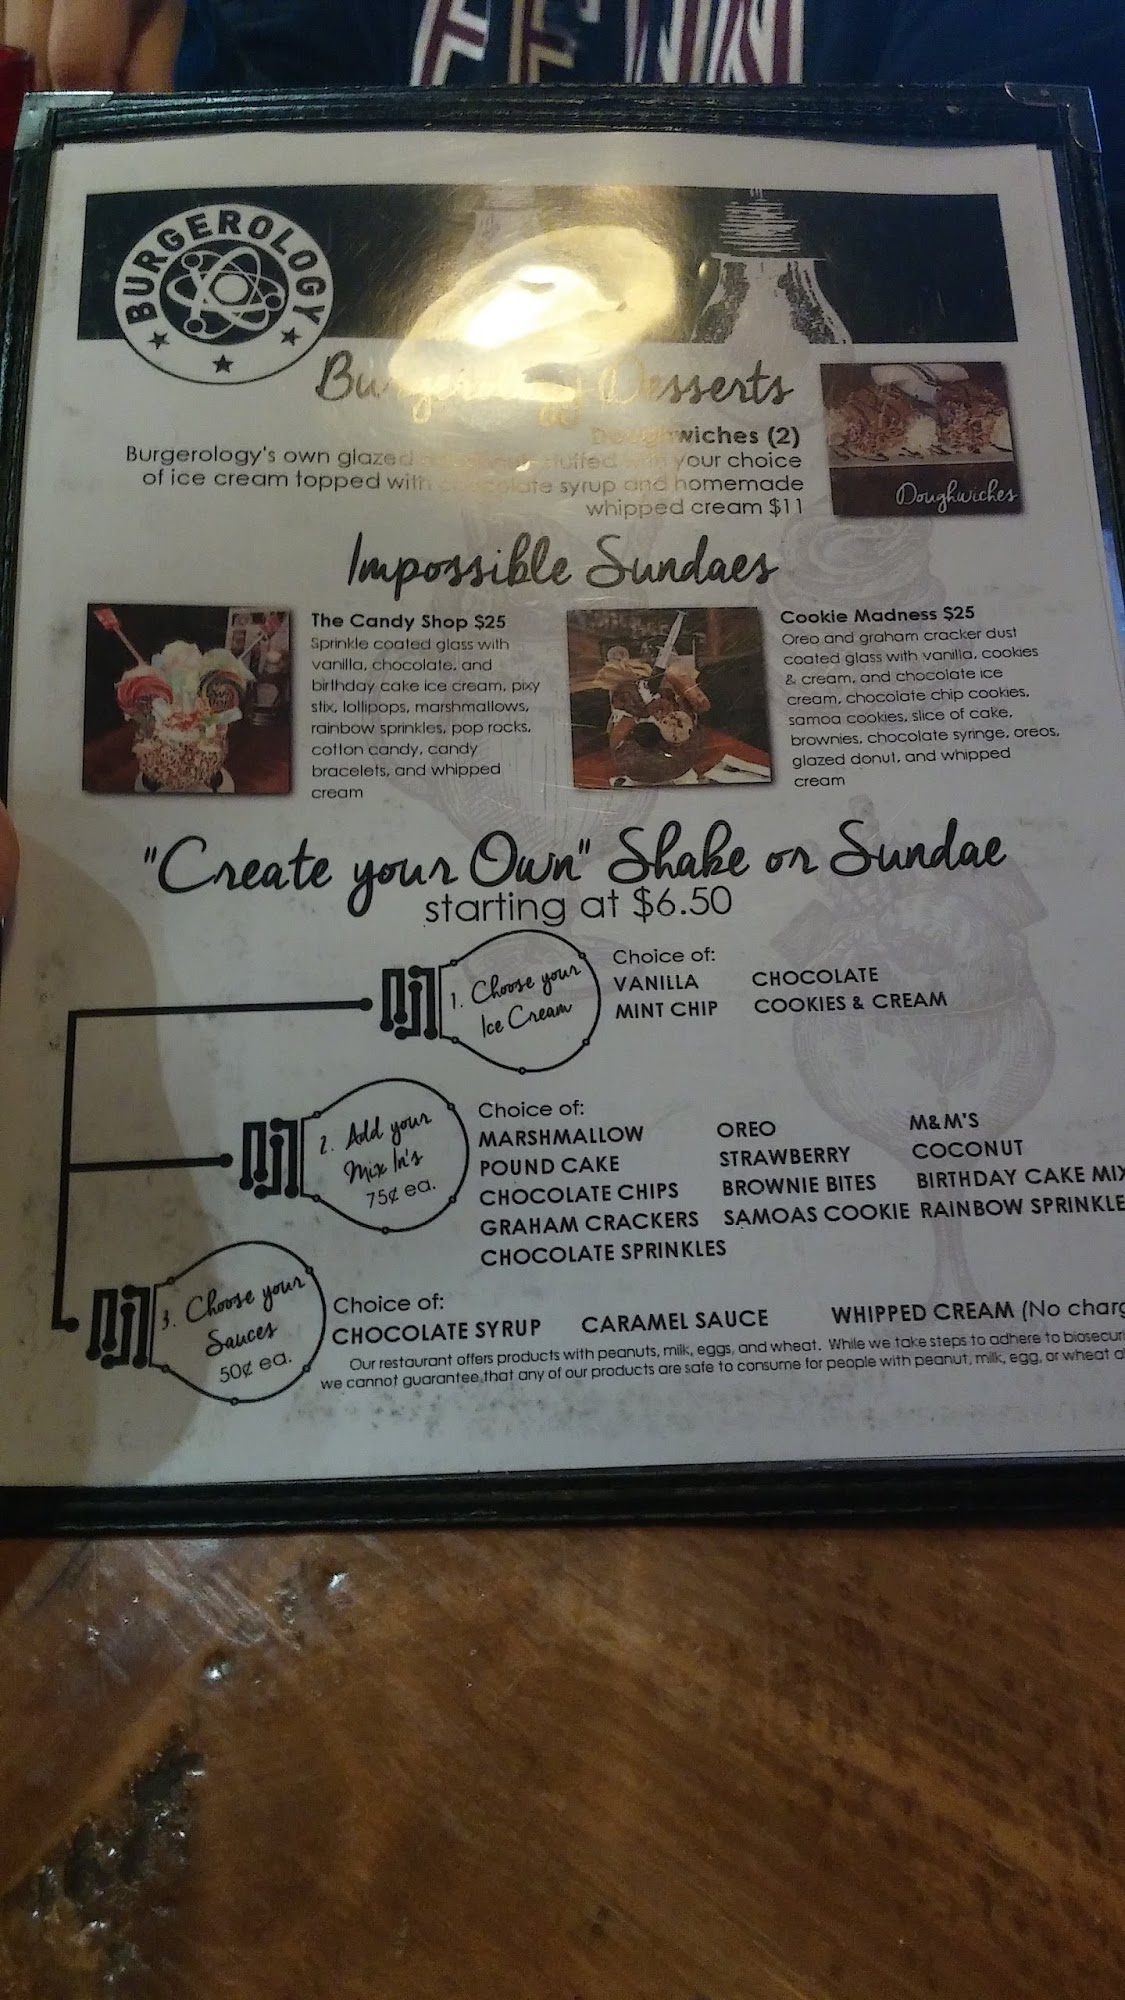 BURGEROLOGY
Burgerology Desserts
Doughwiches (2)
Burgerology's own glazed stuffed with your choice
of ice cream topped with chocolate syrup and homemade
whipped cream $11
Doughwiches
Impossible Sundaes
The Candy Shop $25
Sprinkle coated glass with
vanilla, chocolate, and
birthday cake ice cream, pixy
stix, lollipops, marshmallows,
rainbow sprinkles, pop rocks,
cotton candy, candy
bracelets, and whipped
cream
Cookie Madness $25
Oreo and graham cracker dust
coated glass with vanilla, cookies
& cream, and chocolate ice
cream, chocolate chip cookies,
samoa cookies, slice of cake,
brownies, chocolate syringe, oreos,
glazed donut, and whipped
cream
"Create your Own" Shake or Sundae
starting at $6.50
1. Choose your
Ice Cream
Choice of:
VANILLA CHOCOLATE
MINT CHIP COOKIES & CREAM
2. Add your
Mix In's
75¢ ea.
Choice of:
MARSHMALLOW OREO M&M'S
POUND CAKE STRAWBERRY COCONUT
CHOCOLATE CHIPS BROWNIE BITES BIRTHDAY CAKE MIX
GRAHAM CRACKERS SAMOAS COOKIE RAINBOW SPRINKLE
CHOCOLATE SPRINKLES
3. Choose your
Sauces
50¢ ea.
Choice of:
CHOCOLATE SYRUP CARAMEL SAUCE WHIPPED CREAM (No charg
Our restaurant offers products with peanuts, milk, eggs, and wheat. While we take steps to adhere to biosecuri
we cannot guarantee that any of our products are safe to consume for people with peanut, milk, egg, or wheat al